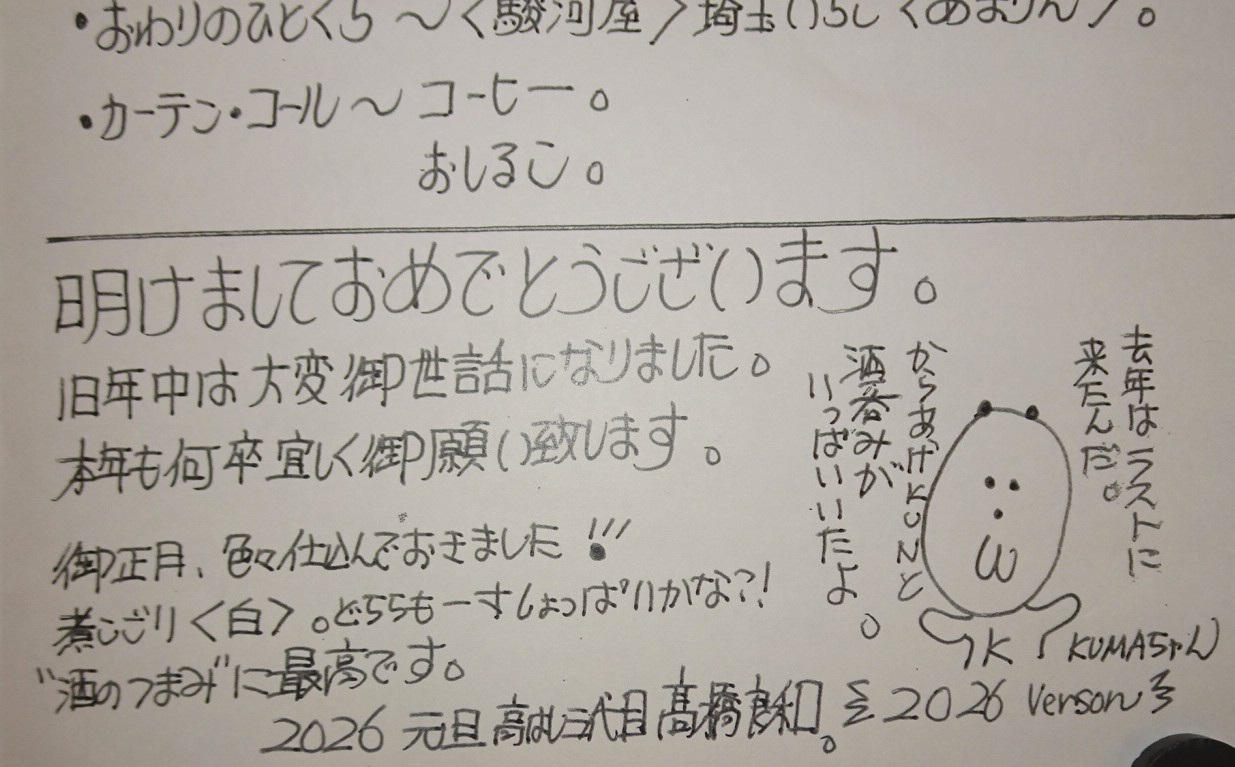 ・おわりのひとくち〜〈駿河屋〉埼玉いちじくのあまりん〉。
・カーテン・コール〜コーヒー。
おしるこ。
明けましておめでとうございます。
旧年中は大変御世話になりました。
本年も何卒宜しく御願い致します。
御正月、色々仕込んでおきました!!!
煮こごり〈白〉。どちらも一すしょっぱいかな?!
"酒のつまみ"に最高です。
2026 元旦 高はし三代目 髙橋良和。
2026 Verson
去年はラストに
来たんだ。
からあげKUNと
酒呑みが
いっぱいいたよ。
K
KUMAちゃん